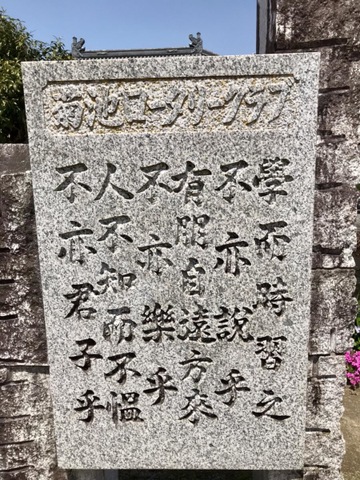 菊池ロータリークラブ
學而時習之
不亦説乎
有朋自遠方來
不亦樂乎
人不知而不慍
不亦君子乎